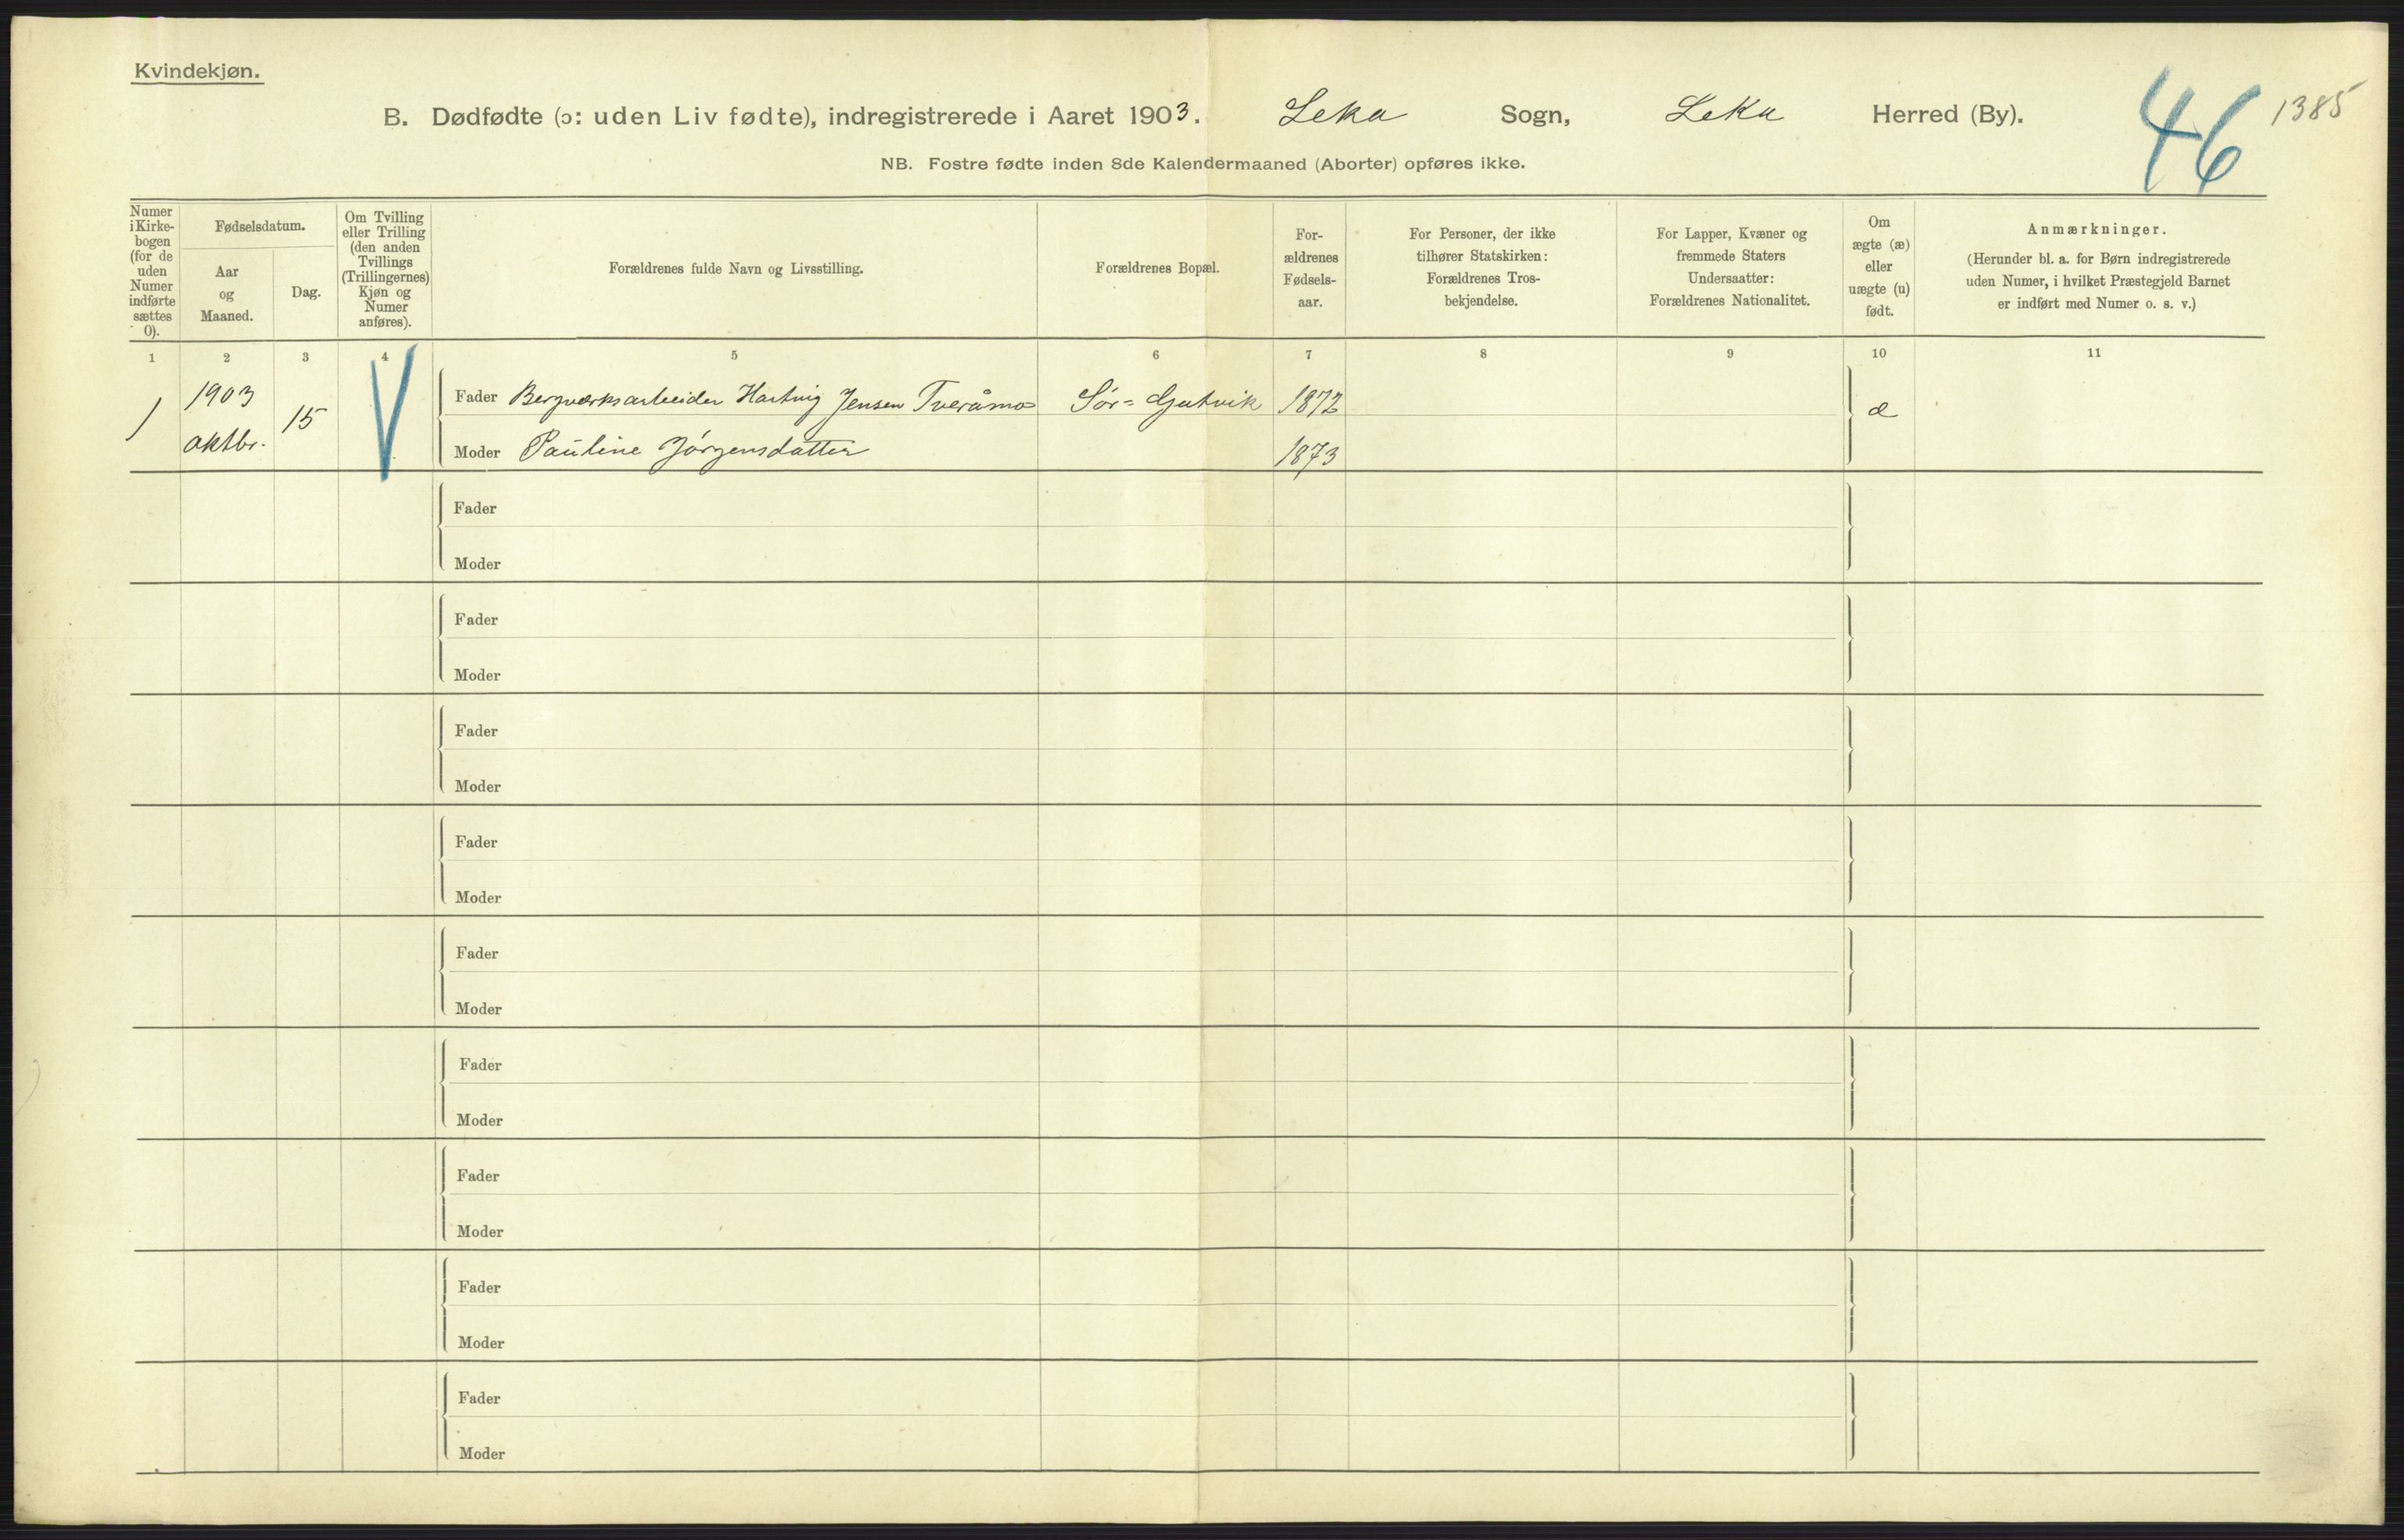 Kvindekjøn.
B. Dødfødte (ɔ: uden Liv fødte), indregistrerede i Aaret 1903. Leka Sogn, Leka Herred (By).
46 1385
NB. Fostre fødte inden 8de Kalendermaaned (Aborter) opføres ikke.
Numer
i Kirke-
bogen
(for de
uden
Numer
indførte
sættes
0).
Fødselsdatum.
Aar
og
Maaned.
Dag.
Om Tvilling
eller Trilling
(den anden
Tvillings
(Trillingernes)
Kjøn og
Numer
anføres).
Forældrenes fulde Navn og Livsstilling.
Forældrenes Bopæl.
For-
ældrenes
Fødsels-
aar.
For Personer, der ikke
tilhører Statskirken:
Forældrenes Tros-
bekjendelse.
For Lapper, Kvæner og
fremmede Staters
Undersaatter:
Forældrenes Nationalitet.
Om
ægte (æ)
eller
uægte (u)
født.
Anmærkninger.
(Herunder bl. a. for Børn indregistrerede
uden Numer, i hvilket Præstegjeld Barnet
er indført med Numer o. s. v.)
1 2 3 4 5 6 7 8 9 10 11
1 1903 15 Fader Bergværksarbeider Hartvig Jensen Tveråmo Sør-Gutvik 1872 æ
oktbr. Moder Pauline Jörgensdatter 1873
Fader
Moder
Fader
Moder
Fader
Moder
Fader
Moder
Fader
Moder
Fader
Moder
Fader
Moder
Fader
Moder
Fader
Moder